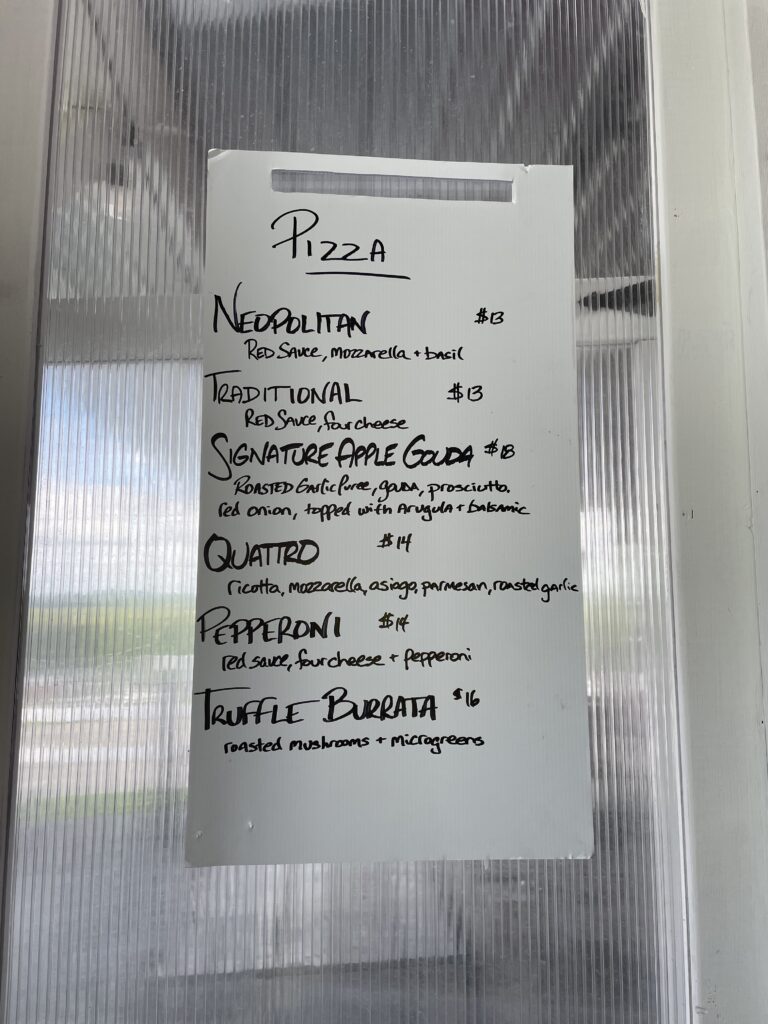 PIZZA
NEOPOLITAN $13
RED SAUCE, MOZZArella + basil
TRADITIONAL $13
RED SAUCE, four cheese
SIGNATURE APPLE GOUDA $18
ROASTED GARLIC Puree, GOUDA, prosciutto.
red onion, topped with Arugula + balsamic
QUATTRO $14
ricotta, mozzarella, asiago, parmesan, roasted garlic
PEPPERONI $14
red sauce, four cheese + pepperoni
TRUFFLE BURRATA $16
roasted mushrooms + microgreens